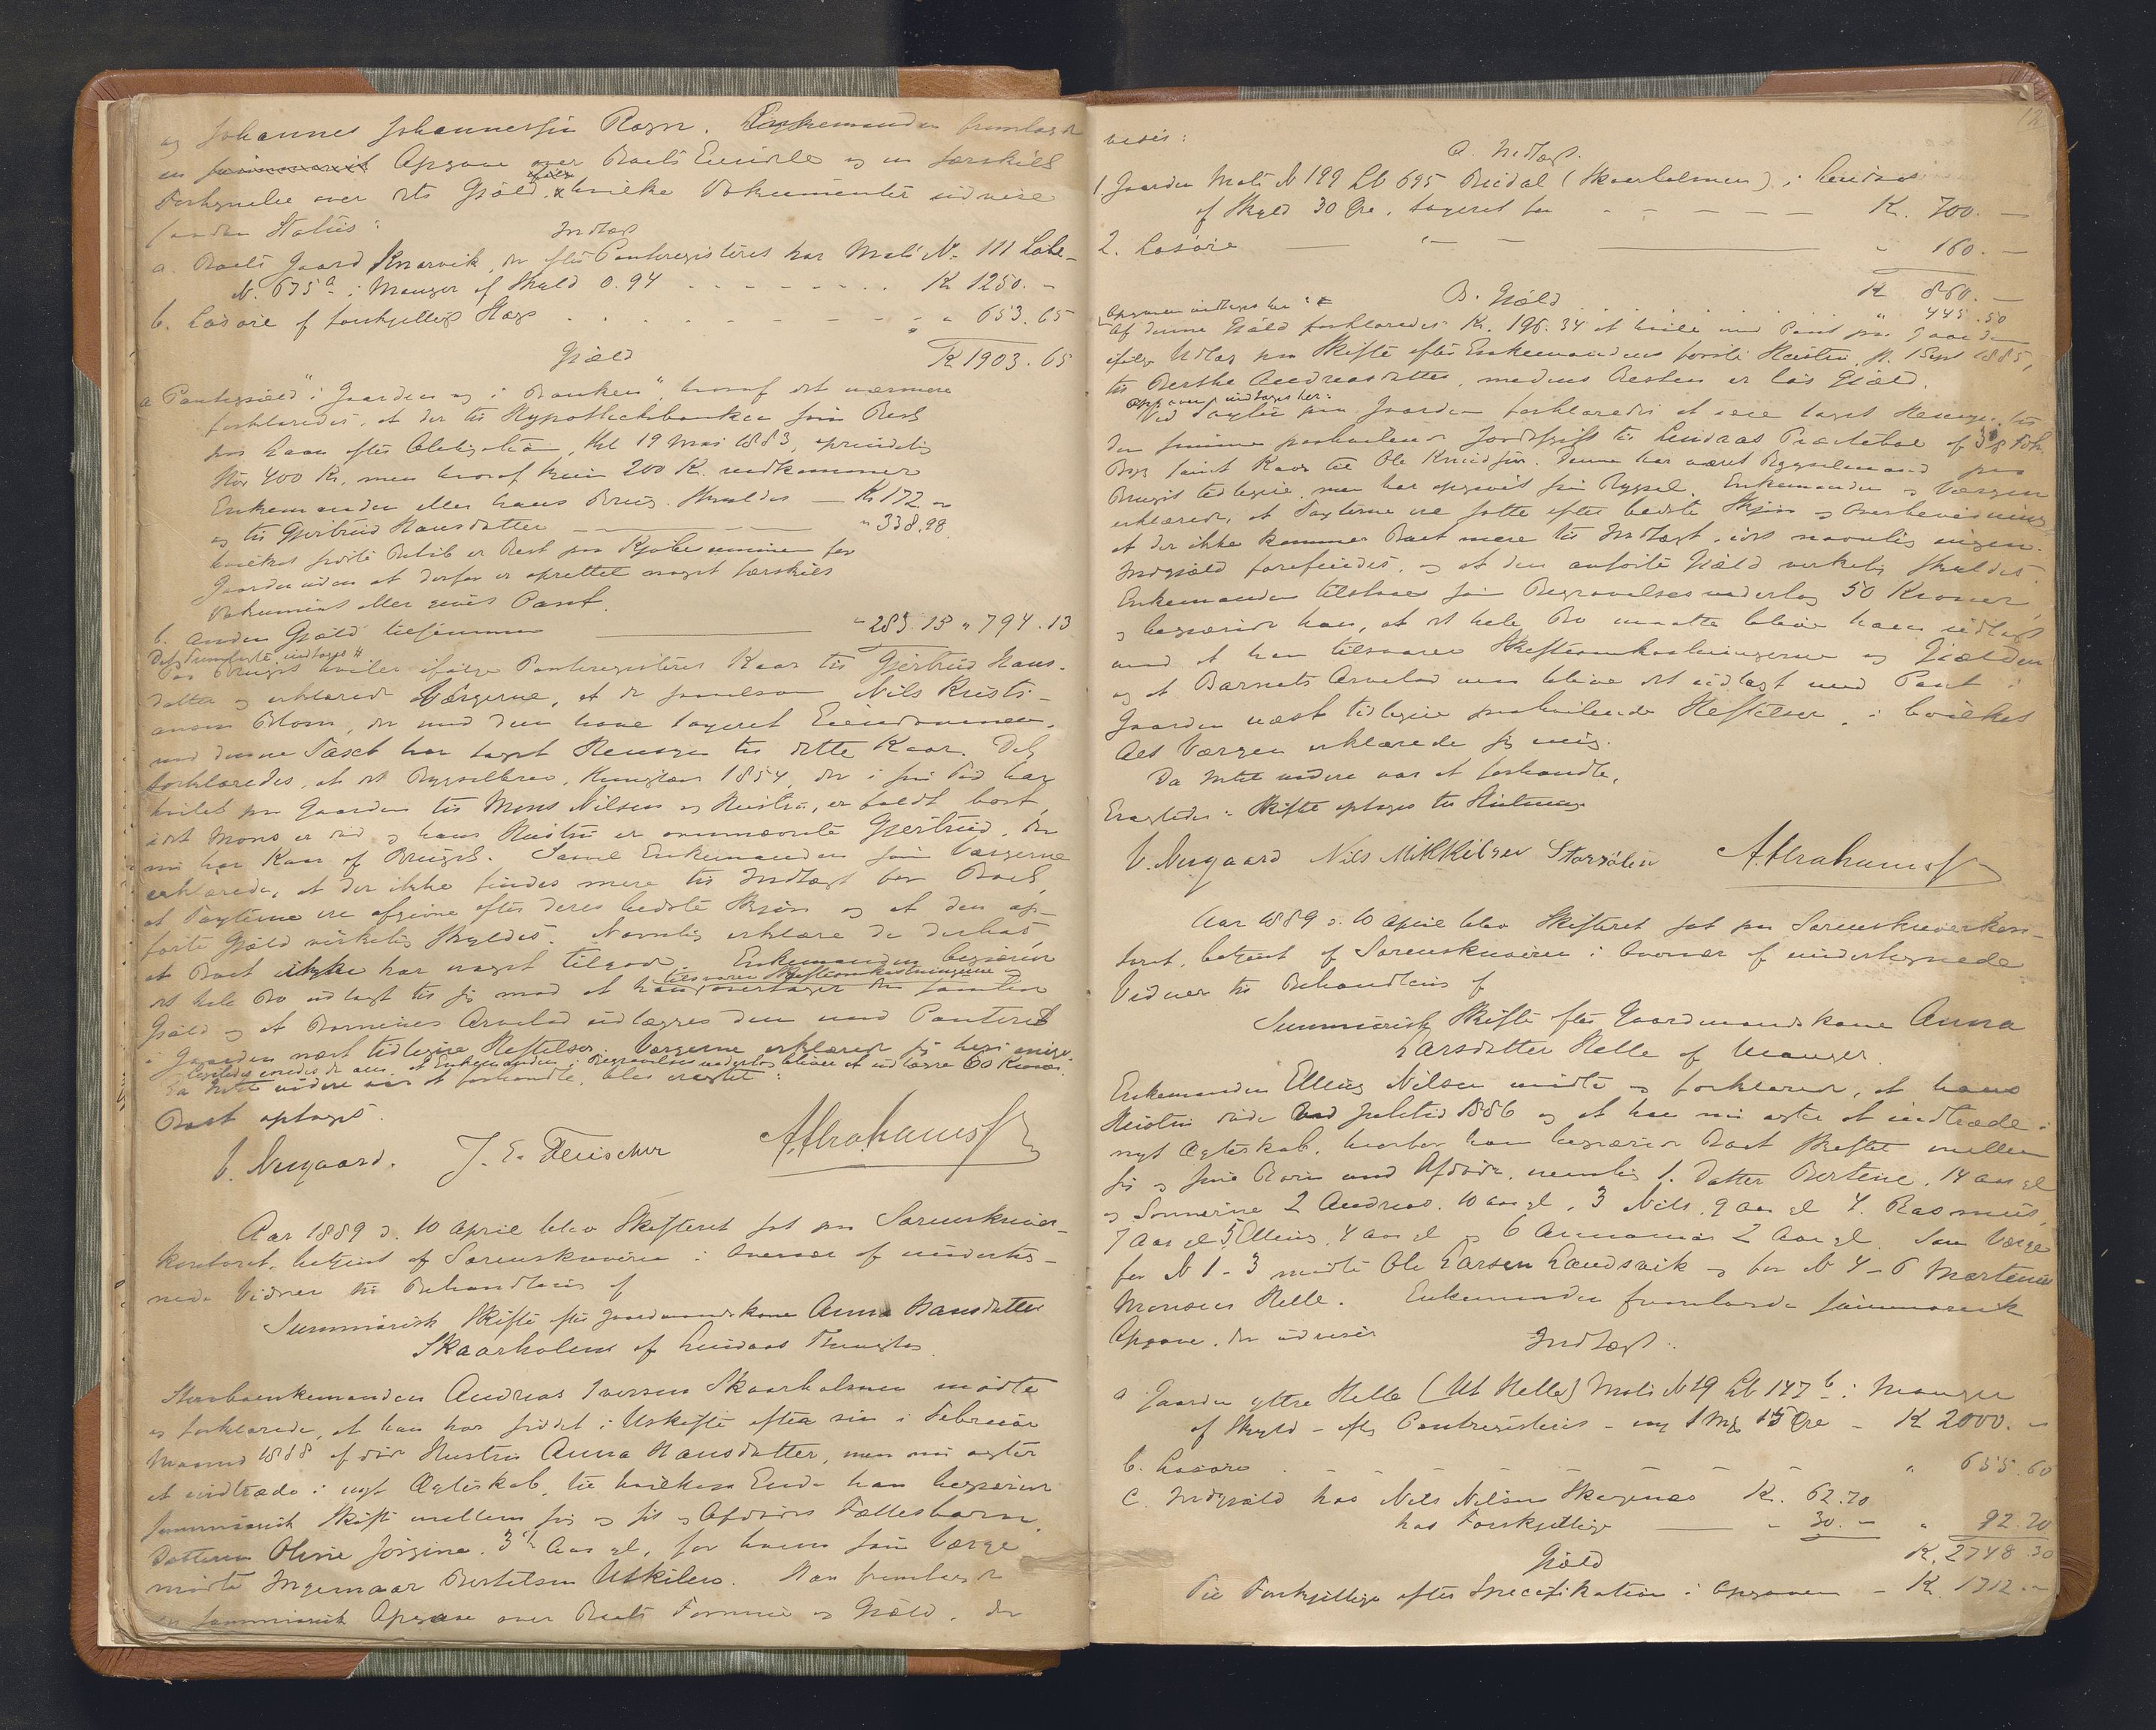 og Johannes Johannessen Ragn. Enkemanden fremlagde
en summarisk Opgave over Boets Eiendele og en særskilt
Fortegnelse over dets Gjæld, efter hvilke Dokumenter udvise
saadan Status:
Indtægt
a. Boets Gaard Knarvik, der efter Pantregisteret har Mats N. 111 Løbe-
N. 675a i Manger af Skyld 0.94 - - - - K 1250. -
b. Løsøre af forskjelligt Slags - - - - " 653.65
K 1903.65
Gjæld
a Pantegjæld "i Gaarden og i Banken", hvoraf det nærmere
forklaredes, at der til Hypothekbanken som Rest
paa Laan efter Obligation, thl 19 Mai 1883, oprindelig
stor 400 Kr, men hvoraf kun 200 K. vedkommer
Enkemanden eller hans Brug. Skyldes — K 172 "
og til Gjertrud Hansdatter — — — " 338.98
hvilket sidste Beløb er Rest paa Kjøbesummen for
Gaarden uden at derfor er oprettet noget særskilt
Dokument eller givet Pant.
b. Anden Gjæld tilsammen — " 283.15 " 794.13
Paa Bruget hviler ifølge Pantregisteret Kaar til Gjertrud Hans-
datter og erklærede Værgerne, at de saavelsom Nils Kristi-
ansen Blom, der med dem have taxeret Eiendommen,
med denne Taxt har taget Hensyn til dette Kaar. Det
forklaredes, at det Bygselbrev, thinglæst 1854, der i sin Tid har
hvilet paa Gaarden til Mons Nilsen og Hustru, er faldt bort,
idet Mons er død og hans Hustru er ovennævnte Gjertrud, der
nu har Kaar af Bruget. Saavel Enkemanden som Værgerne
erklærede, at der ikke findes mere til Indtægt for Boet,
at Taxterne ere afgivne efter deres bedste Skjøn og at den op-
førte Gjæld virkelig skyldes. Navnlig erklære de derhos,
at Boet ikke har noget tilgode. Enkemanden begjærede
det hele Bo udlagt til sig mod at han tilsvarer Skifteomkostningerne og overtager den samtlige
Gjæld og at Børnenes Arvelod udlægges dem med Panteret
i Gaarden næst tidligere Heftelser. Værgerne erklærede sig heri enige.
Ligeledes enedes de om, at Enkemanden i Begravelsesudlæg bliver at udlægge 60 Kroner.
Da Intet videre var at forhandle, blev eragtet:
Boet optages.
V. Nygaard. J. E. Fleischer A. Abrahamsen
Aar 1889 d. 10 April blev Skifteret sat paa Sorenskriver-
kontoret, betjent af Sorenskriveren i Overvær af underteg-
nede Vidner til Behandling af
Summarisk Skifte efter Gaardmandskone Anna Hansdatter
Skaarholmen af Lindaas Thinglag
Stervboenkemanden Andreas Iversen Skaarholmen mødte
og forklarede, at han har siddet i Uskifte efter sin i Februar
Maaned 1888 afdøde Hustru Anna Hansdatter, men nu agter
at indtræde i nyt Ægteskab, til hvilken Ende han begjærede
summarisk Skifte mellem sig og sit og Afdødes Fællesbarn,
Datteren Oline Jørgine, 3 1/2 Aar gl., for hvem som Værge
mødte Ingemaar Bertelsen Utkilen. Han fremlagde
en summarisk Opgave over Boets Formue og Gjæld, der
viser:
A. Indtægt.
1. Gaarden Mats N 199 Lb 695 Risdal (Skaarholmen) i Lindaas
af Skyld 30 Øre, taxeret for - - - - K. 700. —
2. Løsøre — " — — " 160. —
K 860. —
B. Gjæld . . . . . " 445.50
Opgaven indtages her
Af denne Gjæld forklaredes K. 196.34 at hvile med Pant paa Gaarden
ifølge Udlæg paa Skifte efter Enkemandens første Hustru, st. 1 Sept 1885,
til Berthe Andreasdatter, medens Resten er løs Gjæld.
Opgaven indtages her:
Ved Taxten paa Gaarden forklaredes at være taget Hensyn til
den samme paahvilende Jordafgift til Lindaas Præstebol af 3/8 Tdr.
Byg samt Kaar til Ole Knudsen. Denne har været Bygselmand paa
Bruget tidligere, men har opgivet sin Bygsel. Enkemanden og Værgen
erklærede, at Taxterne ere satte efter bedste Skjøn og Overbevisning,
at der ikke kommer Boet mere til Indtægt, idet navnlig ingen
Indgjæld forefindes, og at den anførte Gjæld virkelig skyldes.
Enkemanden tilstaaes som Begravelsesudlæg 50 Kroner,
og begjærede han, at det hele Bo maatte blive ham udlagt
mod at han tilsvarer Skifteomkostningerne og Gjælden
og at Barnets Arvelod maa blive det udlagt med Pant i
Gaarden næst tidligere paahvilende Heftelser, i hvilket
Alt Værgen erklærede sig enig.
Da Intet videre var at forhandle,
Eragtedes: Skifte optages til Slutning
V. Nygaard Nils Mikkelsen Storsølen A. Abrahamsen
Aar 1889 d. 10 April blev Skifteret sat paa Sorenskriverkon-
toret, betjent af Sorenskriveren i Overvær af undertegnede
Vidner til Behandling af
Summarisk Skifte efter Gaardmandskone Anna
Larsdatter Helle af Manger.
Enkemanden Elling Nilsen mødte og forklarede, at hans
Hustru døde ved Juletid 1886 og at han nu agter at indtræde i
nyt Ægteskab, hvorfor han begjærede Boet skiftet mellem
sig og sine Børn med Afdøde, nemlig 1. Datter Bertine, 14 aar gl
og Sønnerne 2 Andreas, 10 aar gl, 3 Nils, 9 aar gl 4. Rasmus,
7 Aar gl 5 Elling, 4 aar gl og 6 Annanias 2 Aar gl. Som Værge
for N 1-3 mødte Ole Larsen Landsvik og for N 4-6 Martinus
Monsen Helle. Enkemanden fremlagde summarisk
Opgave, der udviser
Indtægt:
a Gaarden yttre Helle (Ut Helle) Mats N 19 Lb 147b i Manger
af Skyld - efter Pantregisteret - 1 Mrk 15 Øre - K 2000. -
b. Løsøre . — — — — — " 655.60
c. Indgjæld hos Nils Nilsen Skagenæs K. 62.70
hos Forskjellige — " 30. - " 92.70
K. 2748.30
Gjæld
Til Forskjellige efter Specifikation i Opgaven - K 1712. -